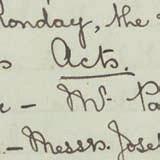 Monday, the
Acts.
– Mr. Pa
– Messrs. Jose